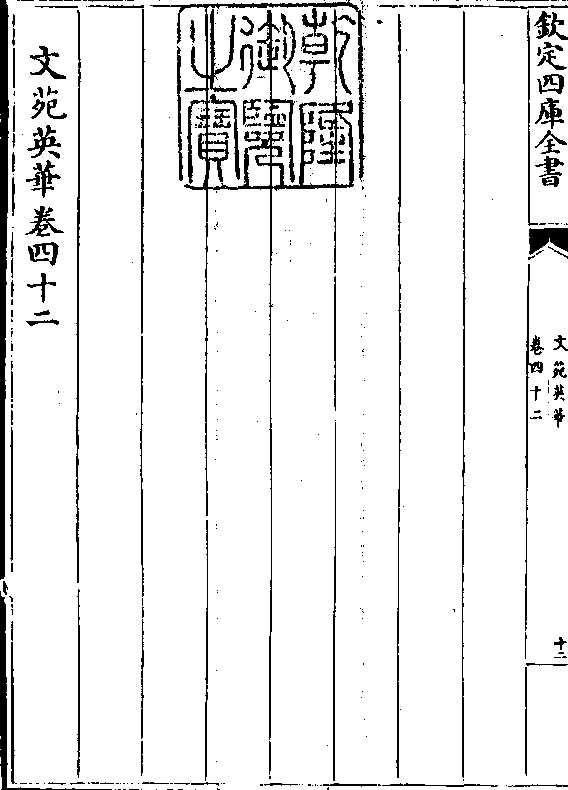 欽定四庫全書
文苑英華
卷四十二
十二
乾隆
御覽
之寶
文苑英華卷四十二